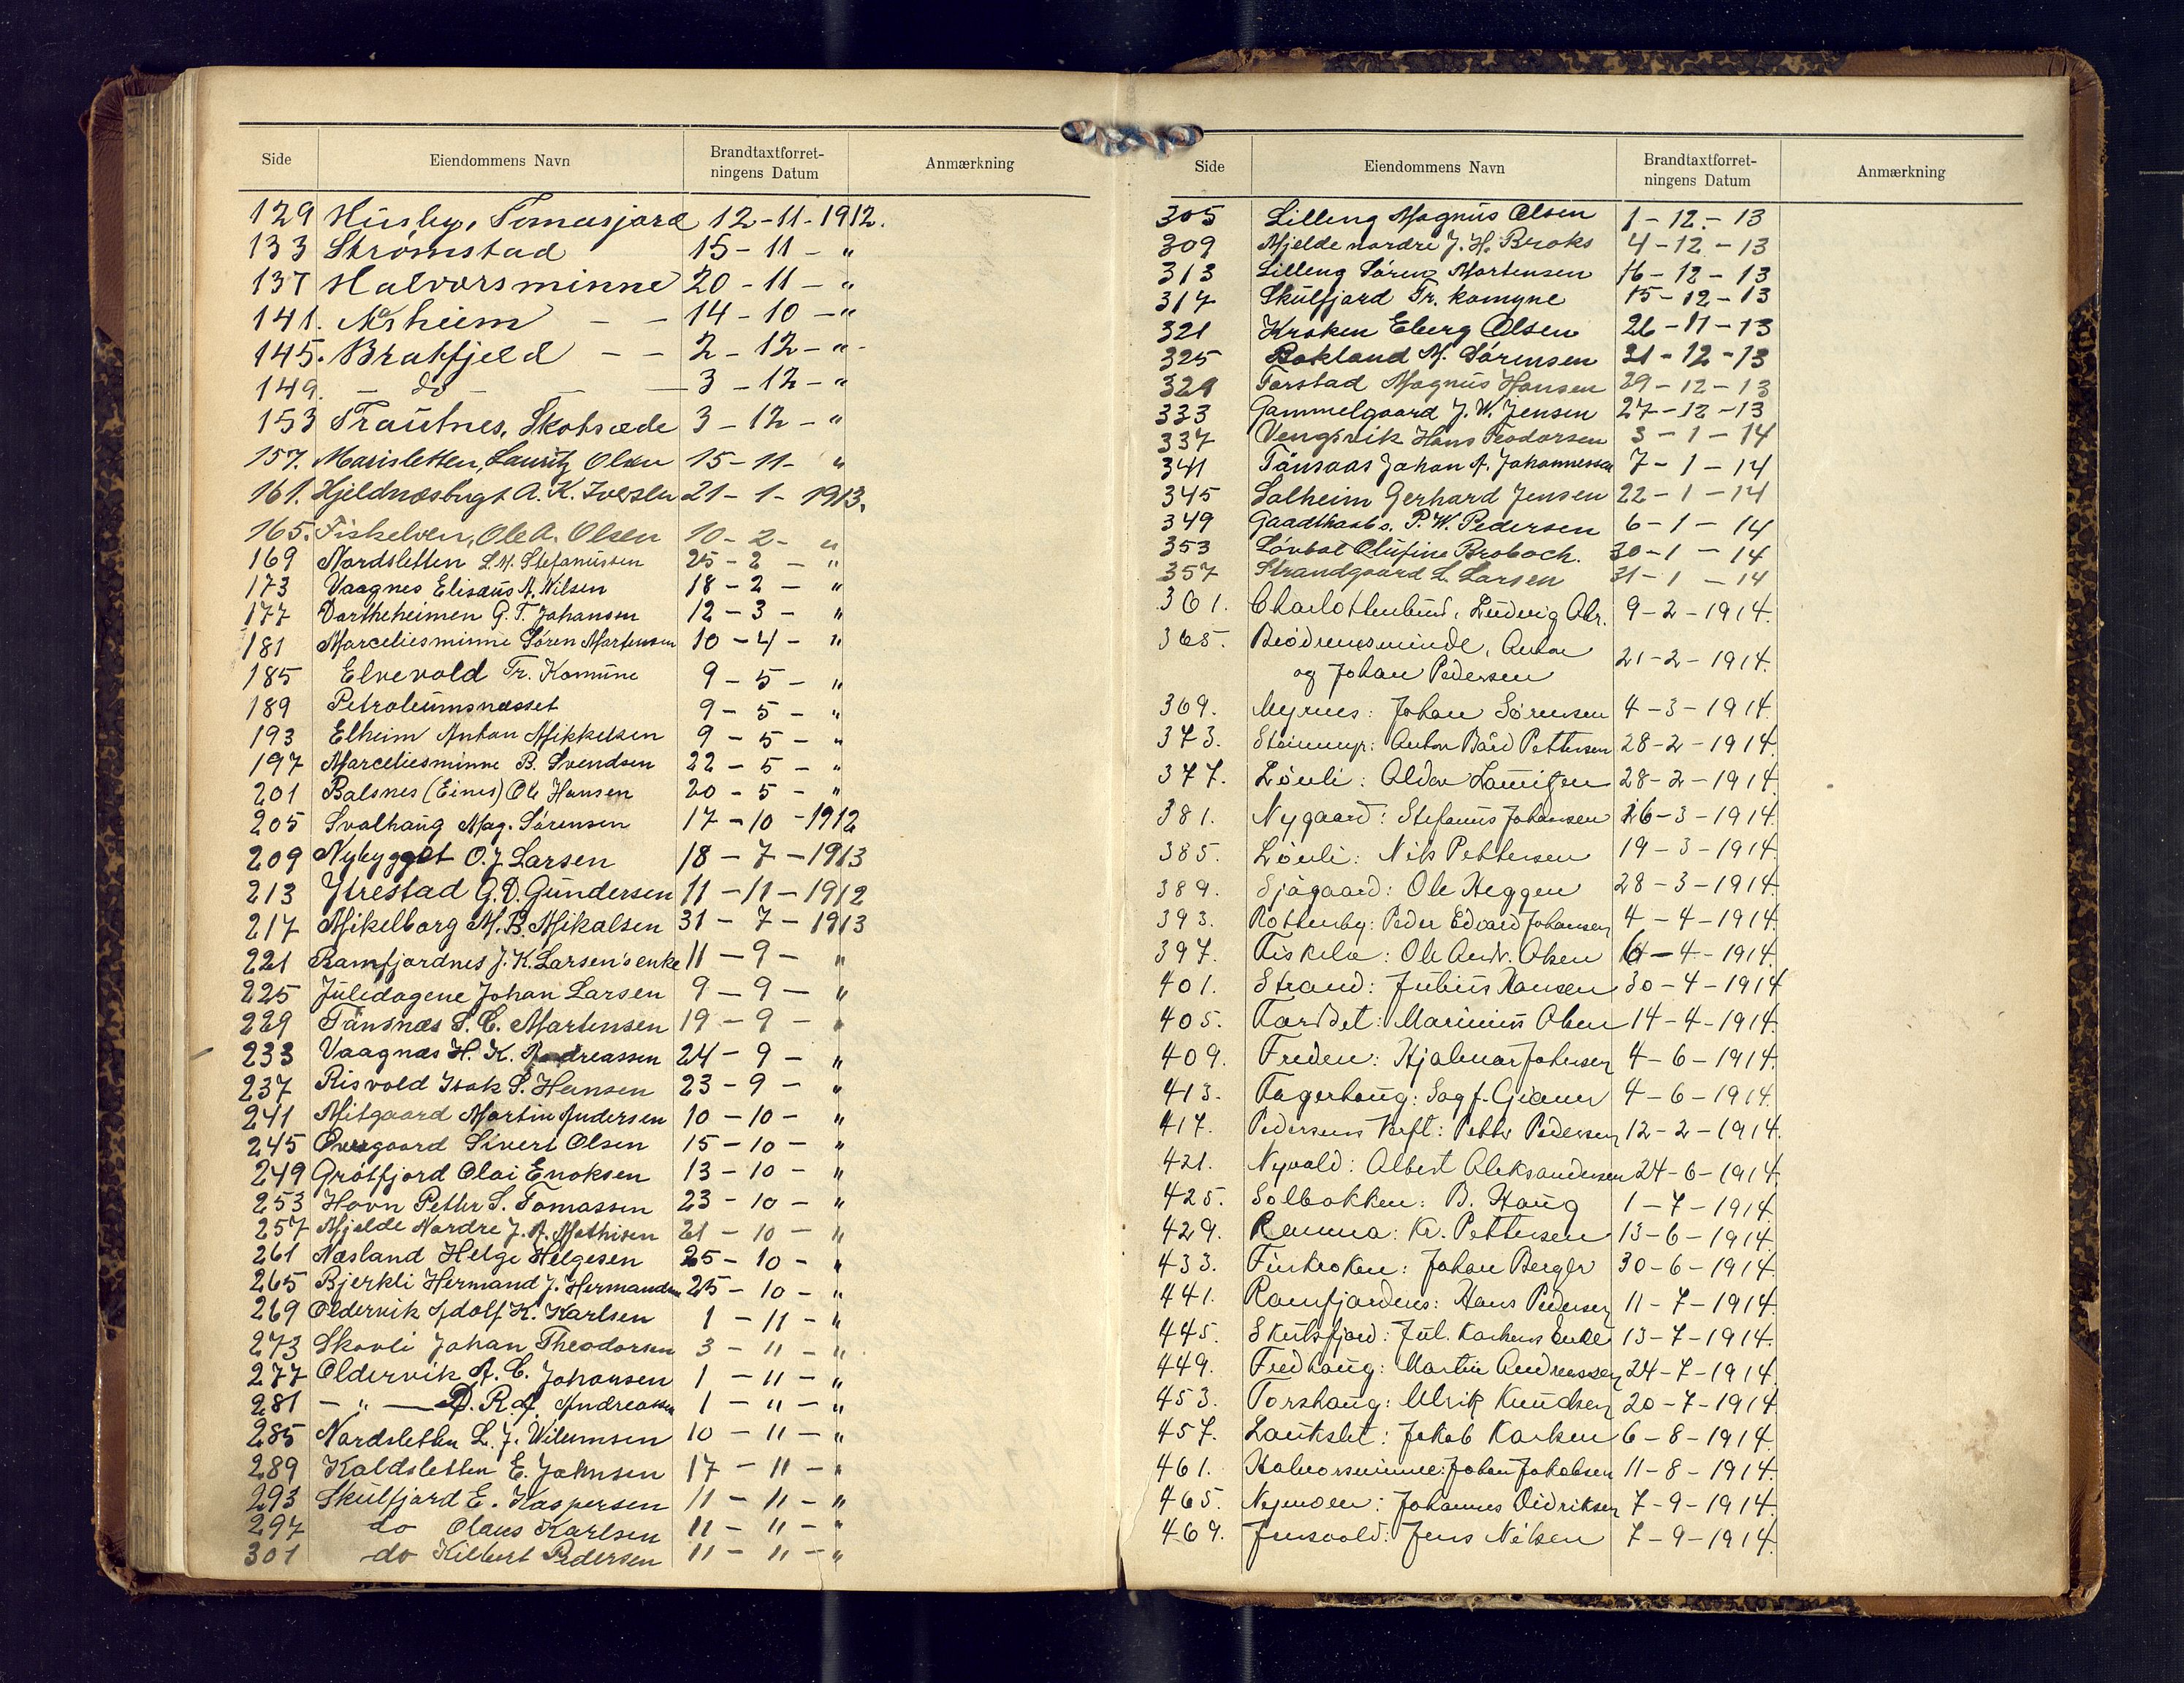 Side Eiendommens Navn Brandtaxtforret-ningens Datum Anmærkning
129 Husby, Tomasjord 12-11-1912.
133 Strømstad 15-11- "
137 Halvorsminne 20-11- "
141. Nesheim – – 14-10-"
145. Brakfjeld – – 2-12-"
149. – do – – – 3-12-"
153 Trautnes, Skotsæde 3-12-"
157. Marisletten, Lauritz Olsen 15-11- "
161. Hjeldnæsbugt A. K. Iversen 21-1-1913.
165. Fiskelven, Ole A. Olsen 10-2- "
169 Nordsletten L. M. Stefanussen 25-2- "
173 Vaagnes Elisæus A. Nilsen 18-2- "
177 Dortheheimen G. T. Johansen 12-3- "
181 Marceliesminne Søren Mortensen 10-4- "
185 Elvevold Tr. Komune 9-5- "
189 Petroleumsnæsset 9-5- "
193 Elheim Anton Mikkelsen 9-5- "
197 Marceliesminne B. Svendsen 22-5- "
201 Balsnes (Eines) Ole Hansen 20-5- "
205 Svalhaug Mag. Sørensen 17-10-1912
209 Nybygget O. J. Larsen 18-7-1913
213 Ytrestad G. D. Gundersen 11-11-1912
217 Mikelborg M. B. Mikalsen 31-7-1913
221 Ramfjordnes J. K. Larsen's enke 11-9- "
225 Juledagene Johan Larsen 9-9- "
229 Tånsnæs S. C. Martensen 19-9- "
233 Vaagnæs H. K. Andreassen 24-9- "
237 Risvold Isak S. Hansen 23-9- "
241 Mitgaard Martin Andersen 10-10- "
245 Overgaard Sivert Olsen 15-10- "
249 Grötfjord Olai Enoksen 13-10- "
253 Havn Petter S. Tomassen 23-10- "
257 Mjelde Nordre J. A. Mathisen 21-10- "
261 Næsland Helge Helgesen 25-10- "
265 Bjerkli Hermand J. Hermandsen 25-10- "
269 Oldervik Adolf K. Karlsen 1-11- "
273 Skovli Johan Theodorsen 3-11- "
277 Oldervik A. C. Johansen 1-11- "
281 – " – D. R. A. Andreassen 1-11- "
285 Nordsletten L. J. Wilumsen 10-11- "
289 Kaldsletten E. Johnsen 17-11- "
293 Skulfjord E. Kaspersen 11-11- "
297 do Olaus Karlsen 11-11- "
301 do Kilbert Pedersen 11-11- "
Side Eiendommens Navn Brandtaxtforret-ningens Datum Anmærkning
305 Lilleng Magnus Olsen 1-12-13
309 Mjelde nordre J. H. Broks 4-12-13
313 Lilleng Sørenz Mortensen 16-12-13
317 Skulfjord Tr. komyne 15-12-13
321 Kroken Eberg Olsen 26-11-13
325 Bakland M. Sørensen 31-12-13
329 Torstad Magnus Hansen 29-12-13
333 Gammelgaard J. W. Jensen 27-12-13
337 Vengsvik Hans Teodorsen 3-1-14
341 Tånsaas Johan A. Johannessen 7-1-14
345 Solheim Gerhard Jensen 22-1-14
349 P. W. Pedersen 6-1-14
353 Olufine Brobach. 30-1-14
357 Strandgaard L. Larsen 31-1-14
361. Charlottenlund, Ludvig Abr. 9-2-1914.
365. Brödrenesminde, Anton
og Johan Pedersen 21-2-1914.
369. Myrnes: Johan Sørensen 4-3-1914.
373. Anton Bård Pettersen 28-2-1914.
377. Lönli: Aldor Lauritzen 28-2-1914.
381. Nygaard: Stefanus Johansen 26-3-1914.
385. Lönli: Nils Pettersen 19-3-1914.
389. Sjögaard: Ole Heggen 28-3-1914.
393. Rottenby: Peder Edvard Johansen 4-4-1914.
397. Fiskelv: Ole Andr. Olsen 6-4-1914.
401. Strand: Julius Hansen 30-4-1914
405. Marinius Olsen 14-4-1914.
409. Freden: Hjalmar Johnsen 4-6-1914.
413. Fagerhaug: Sagf. Giæver 4-6-1914.
417. Pedersens Verft: Petter Pedersen 12-2-1914.
421. Nyvold: Albert Aleksandersen 24-6-1914.
425. Solbakken: B. Haug 1-7-1914.
429. Ramna: Kr. Pettersen 13-6-1914.
433. Finkroken: Johan Berger 30-6-1914.
441. Ramfjordnes: Hans Pedersen 11-7-1914.
445. Skulsfjord: Jul. Karlsens Enke 13-7-1914.
449. Fredhaug: Martin Andreassen 24-7-1914.
453. Torshaug: Ulrik Knudsen 20-7-1914.
457. Laukslet: Jakob Karlsen 6-8-1914.
461. Halvorsminne: Johan Jakobsen 11-8-1914.
465. Nymoen: Johannes Didriksen 7-9-1914.
469. Jensvold: Jens Nilsen 7-9-1914.